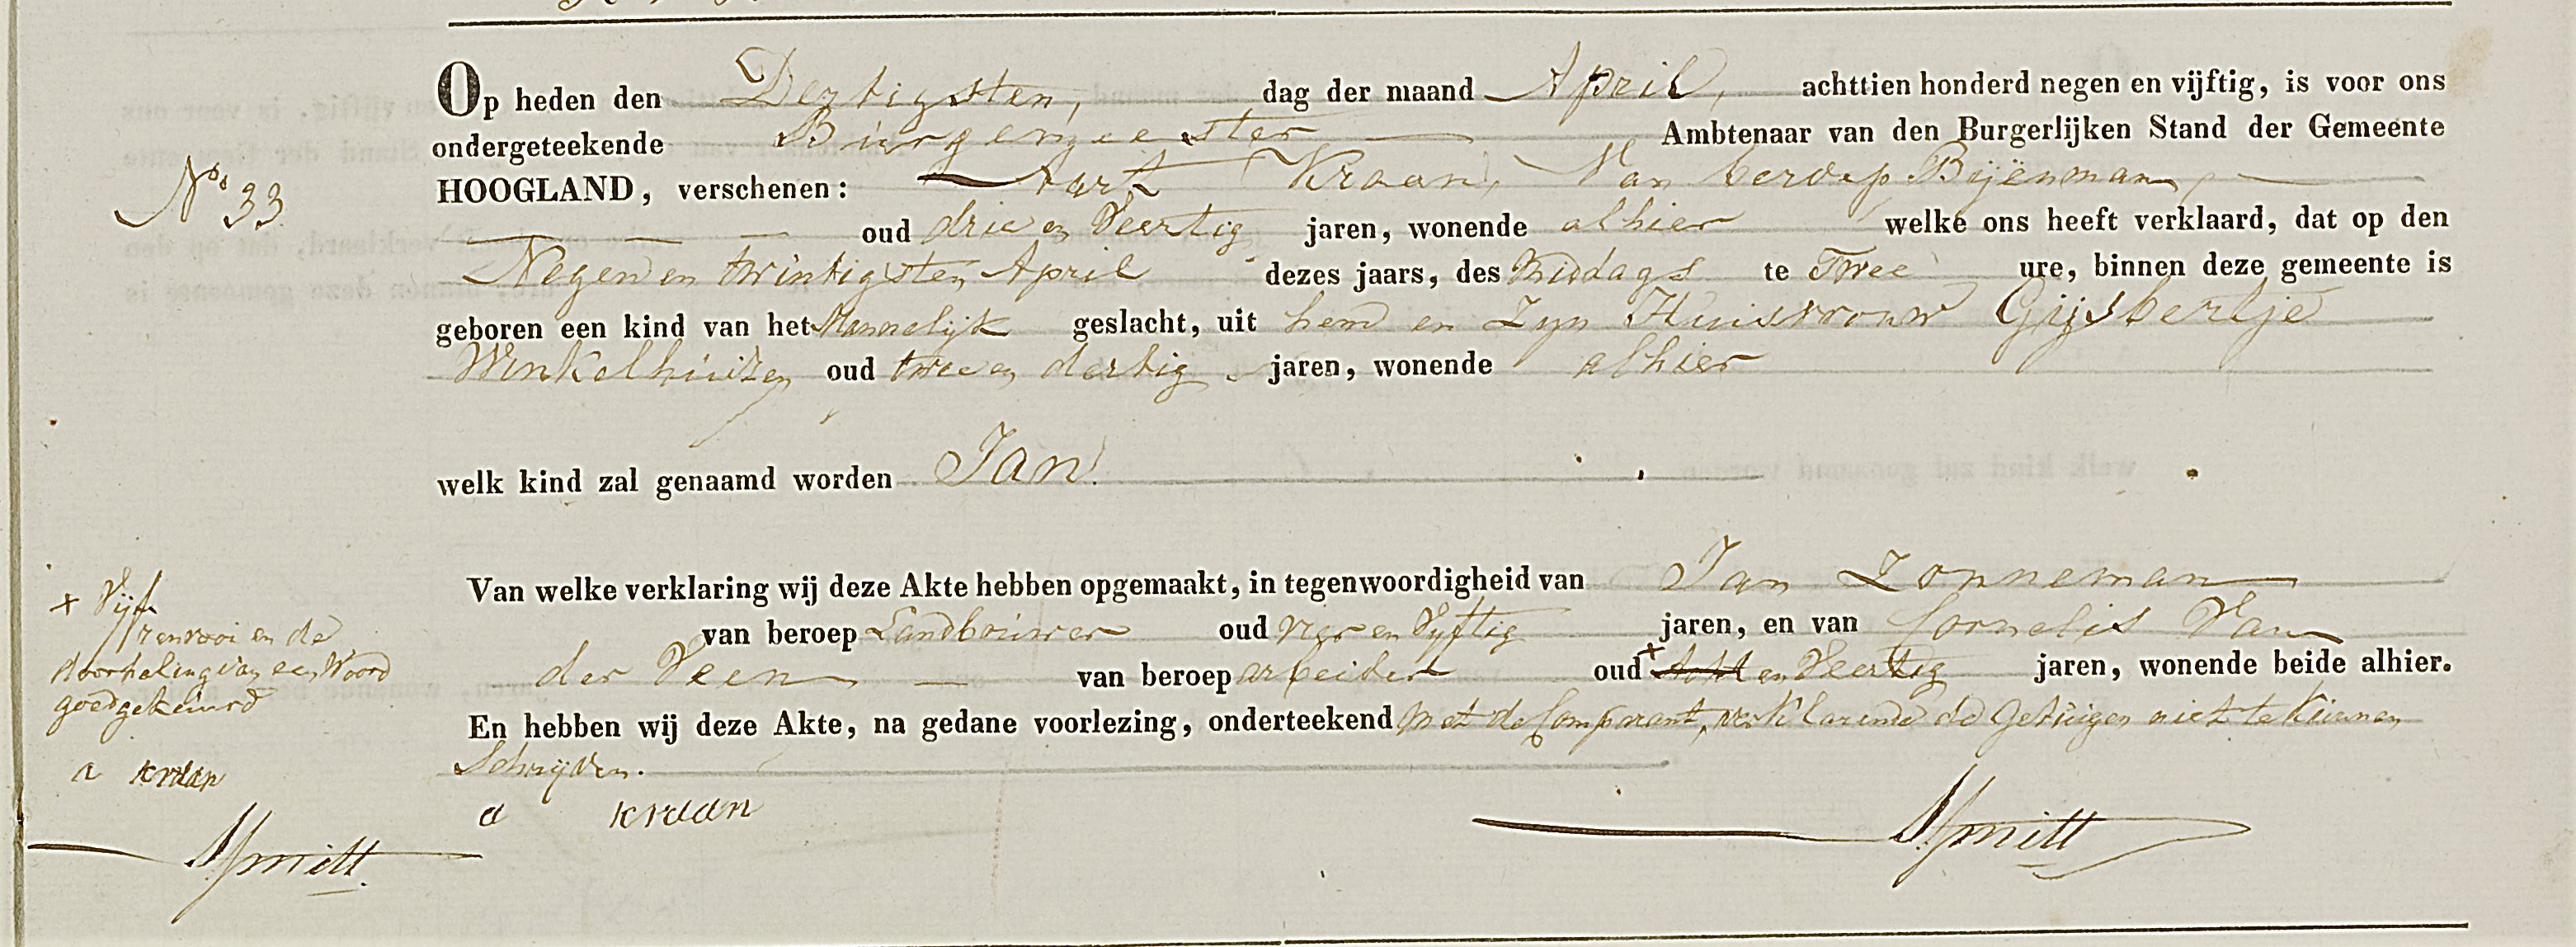 Op heden den Dertigsten, dag der maand April, achttien honderd negen en vijftig, is voor ons
ondergeteekende Burgemeester Ambtenaar van den Burgerlijken Stand der Gemeente
No 33.
HOOGLAND, verschenen: Aart Kraan, Van beroep Bijënman,
oud drie en Veertig jaren, wonende alhier welke ons heeft verklaard, dat op den
Negen en twintigsten April dezes jaars, des Middags te Twee ure, binnen deze gemeente is
geboren een kind van het Mannelijk geslacht, uit hem en Zyn Huisvrouw Gijsbertje
Winkelhuizen oud twee en dertig jaren, wonende alhier
welk kind zal genaamd worden Jan.
Van welke verklaring wij deze Akte hebben opgemaakt, in tegenwoordigheid van Jan Zonneman
van beroep Landbouwer oud vier en Vyftig jaren, en van Cornelis Van
der Veen van beroep arbeider oud + Acht en Veertig jaren, wonende beide alhier.
En hebben wij deze Akte, na gedane voorlezing, onderteekend met de Comparant, verklarende de getuigen niet te kunnen
Schrijven.
a kraan
Smitt
+ Vijf
renvooi en de
doorhaling van een Woord
goedgekeurd
a kraan
Smitt